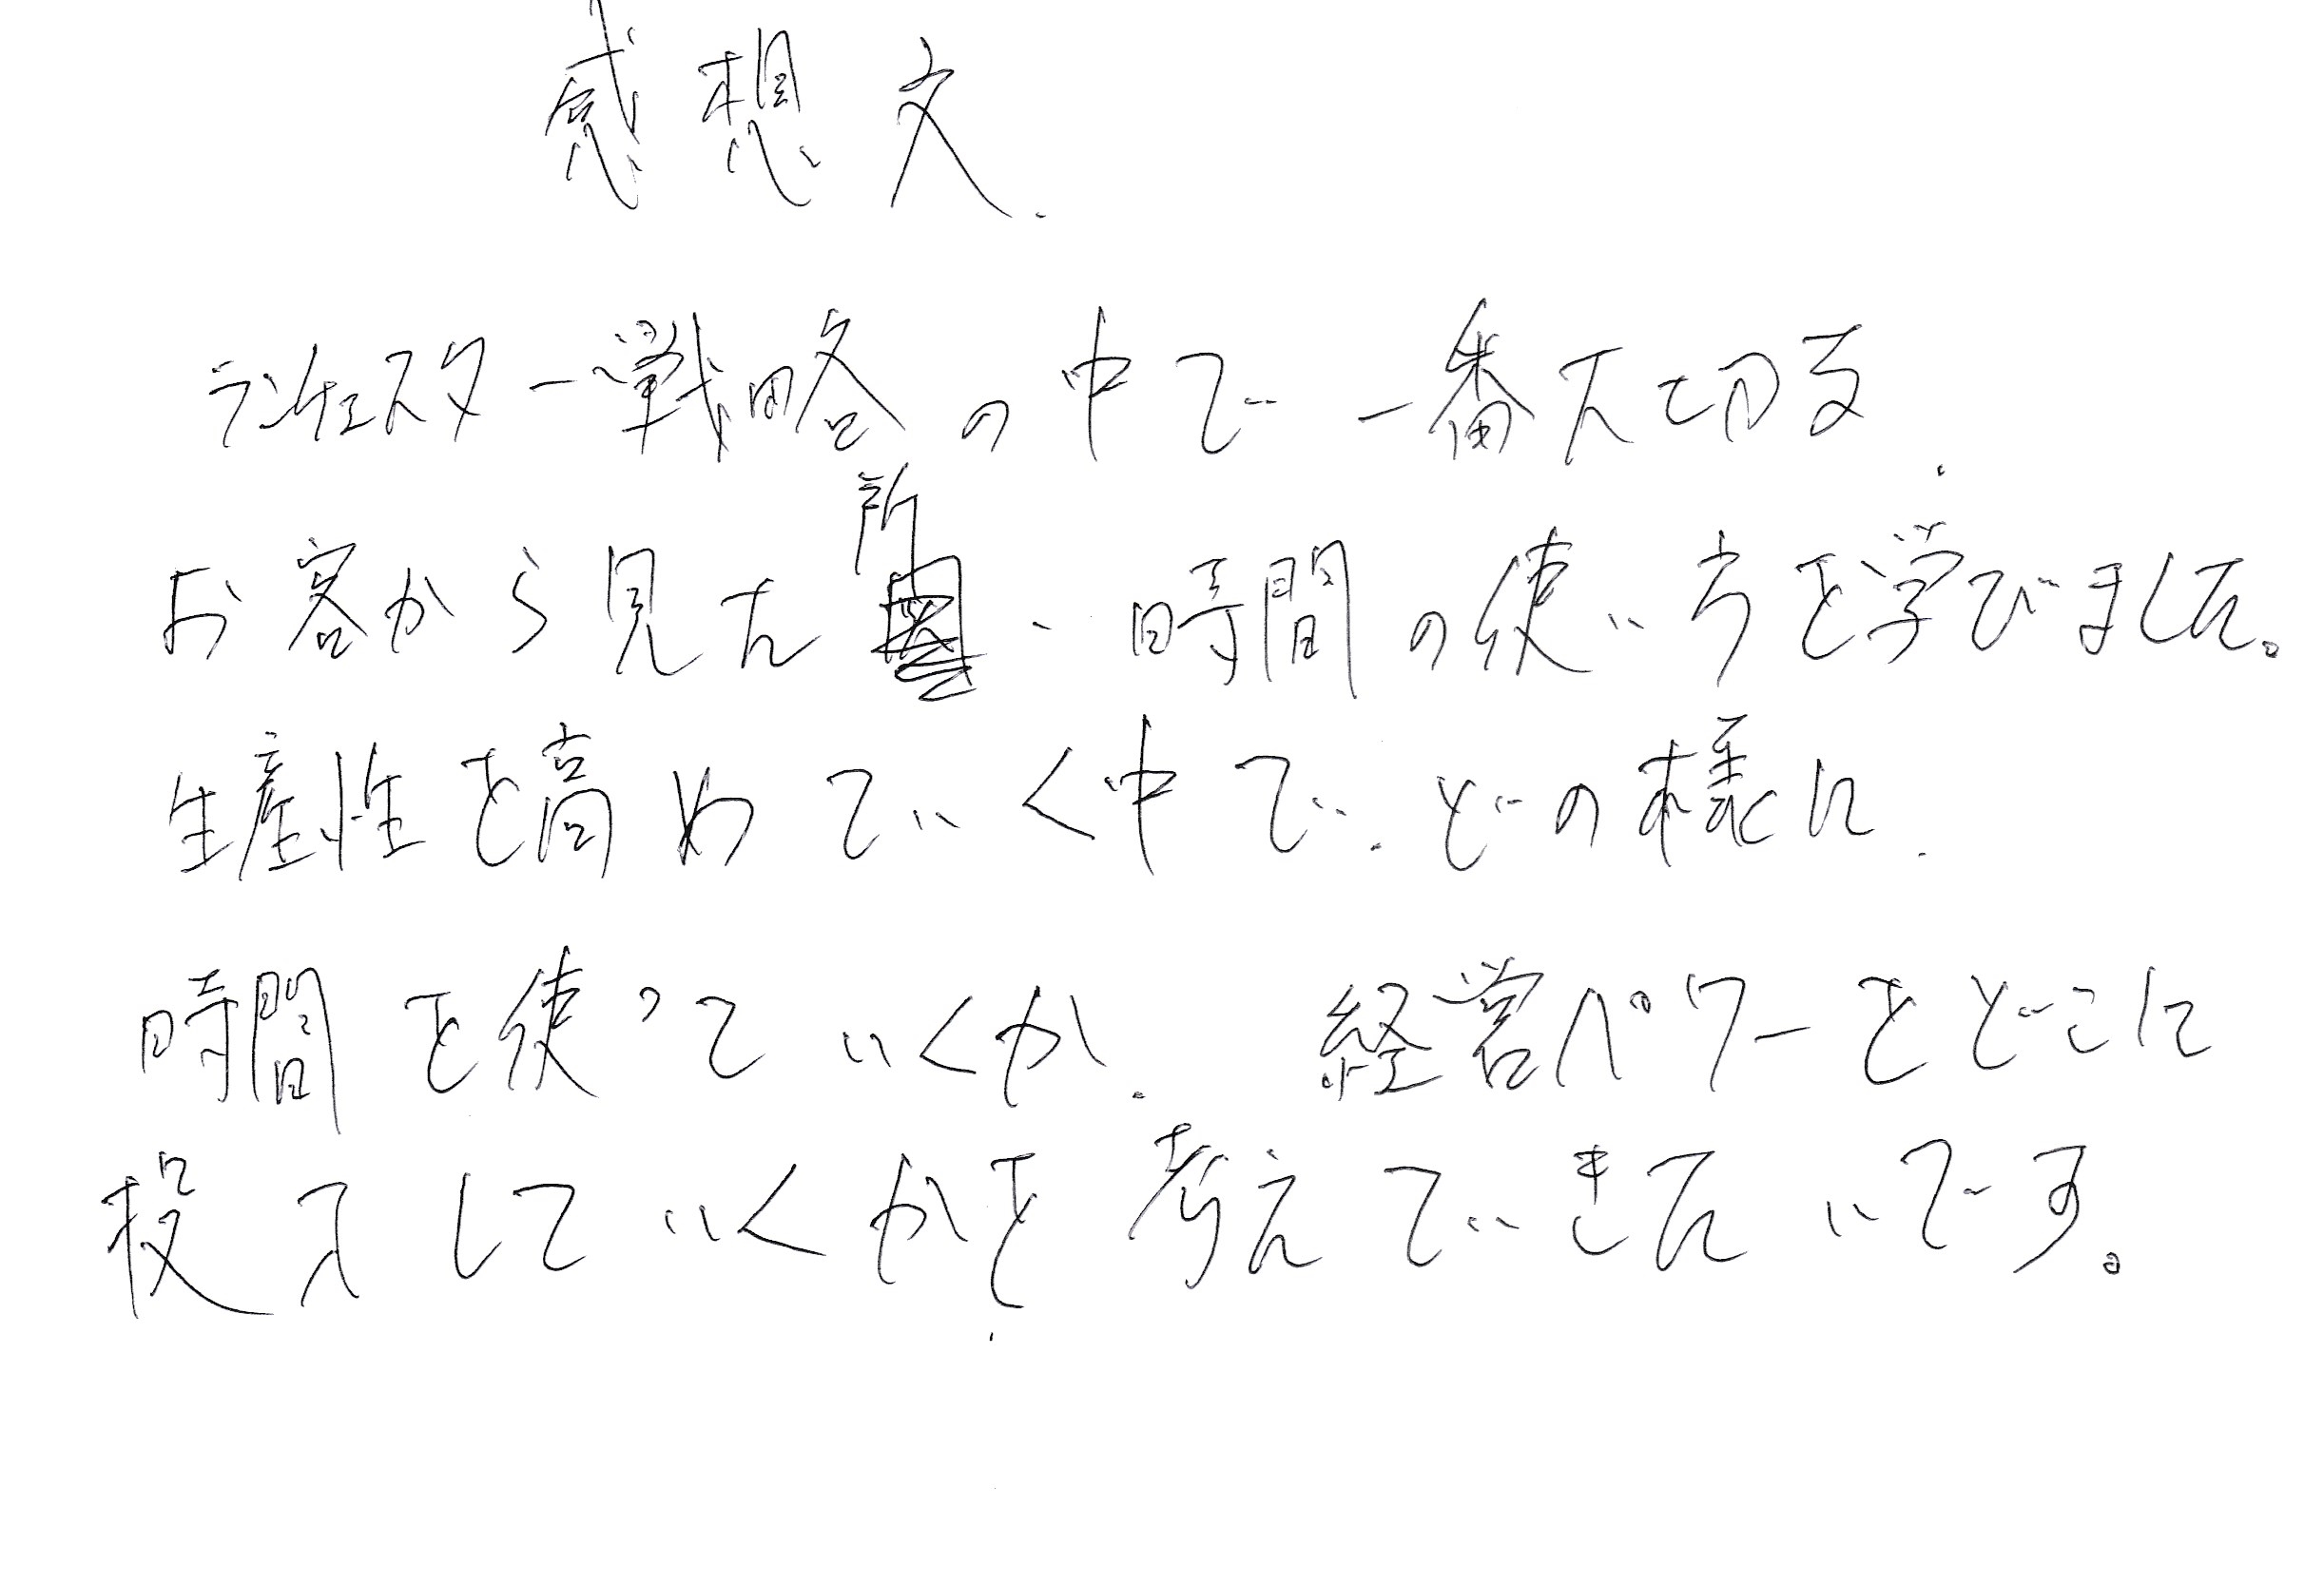 感想文.
ランチェスター戦略の中で一番大切な、
お客から見た所、時間の使い方を学びました。
生産性を高めていく中で、どの様に、
時間を使っていくか、経営パワーをどこに
投入していくかを考えていきたいです。